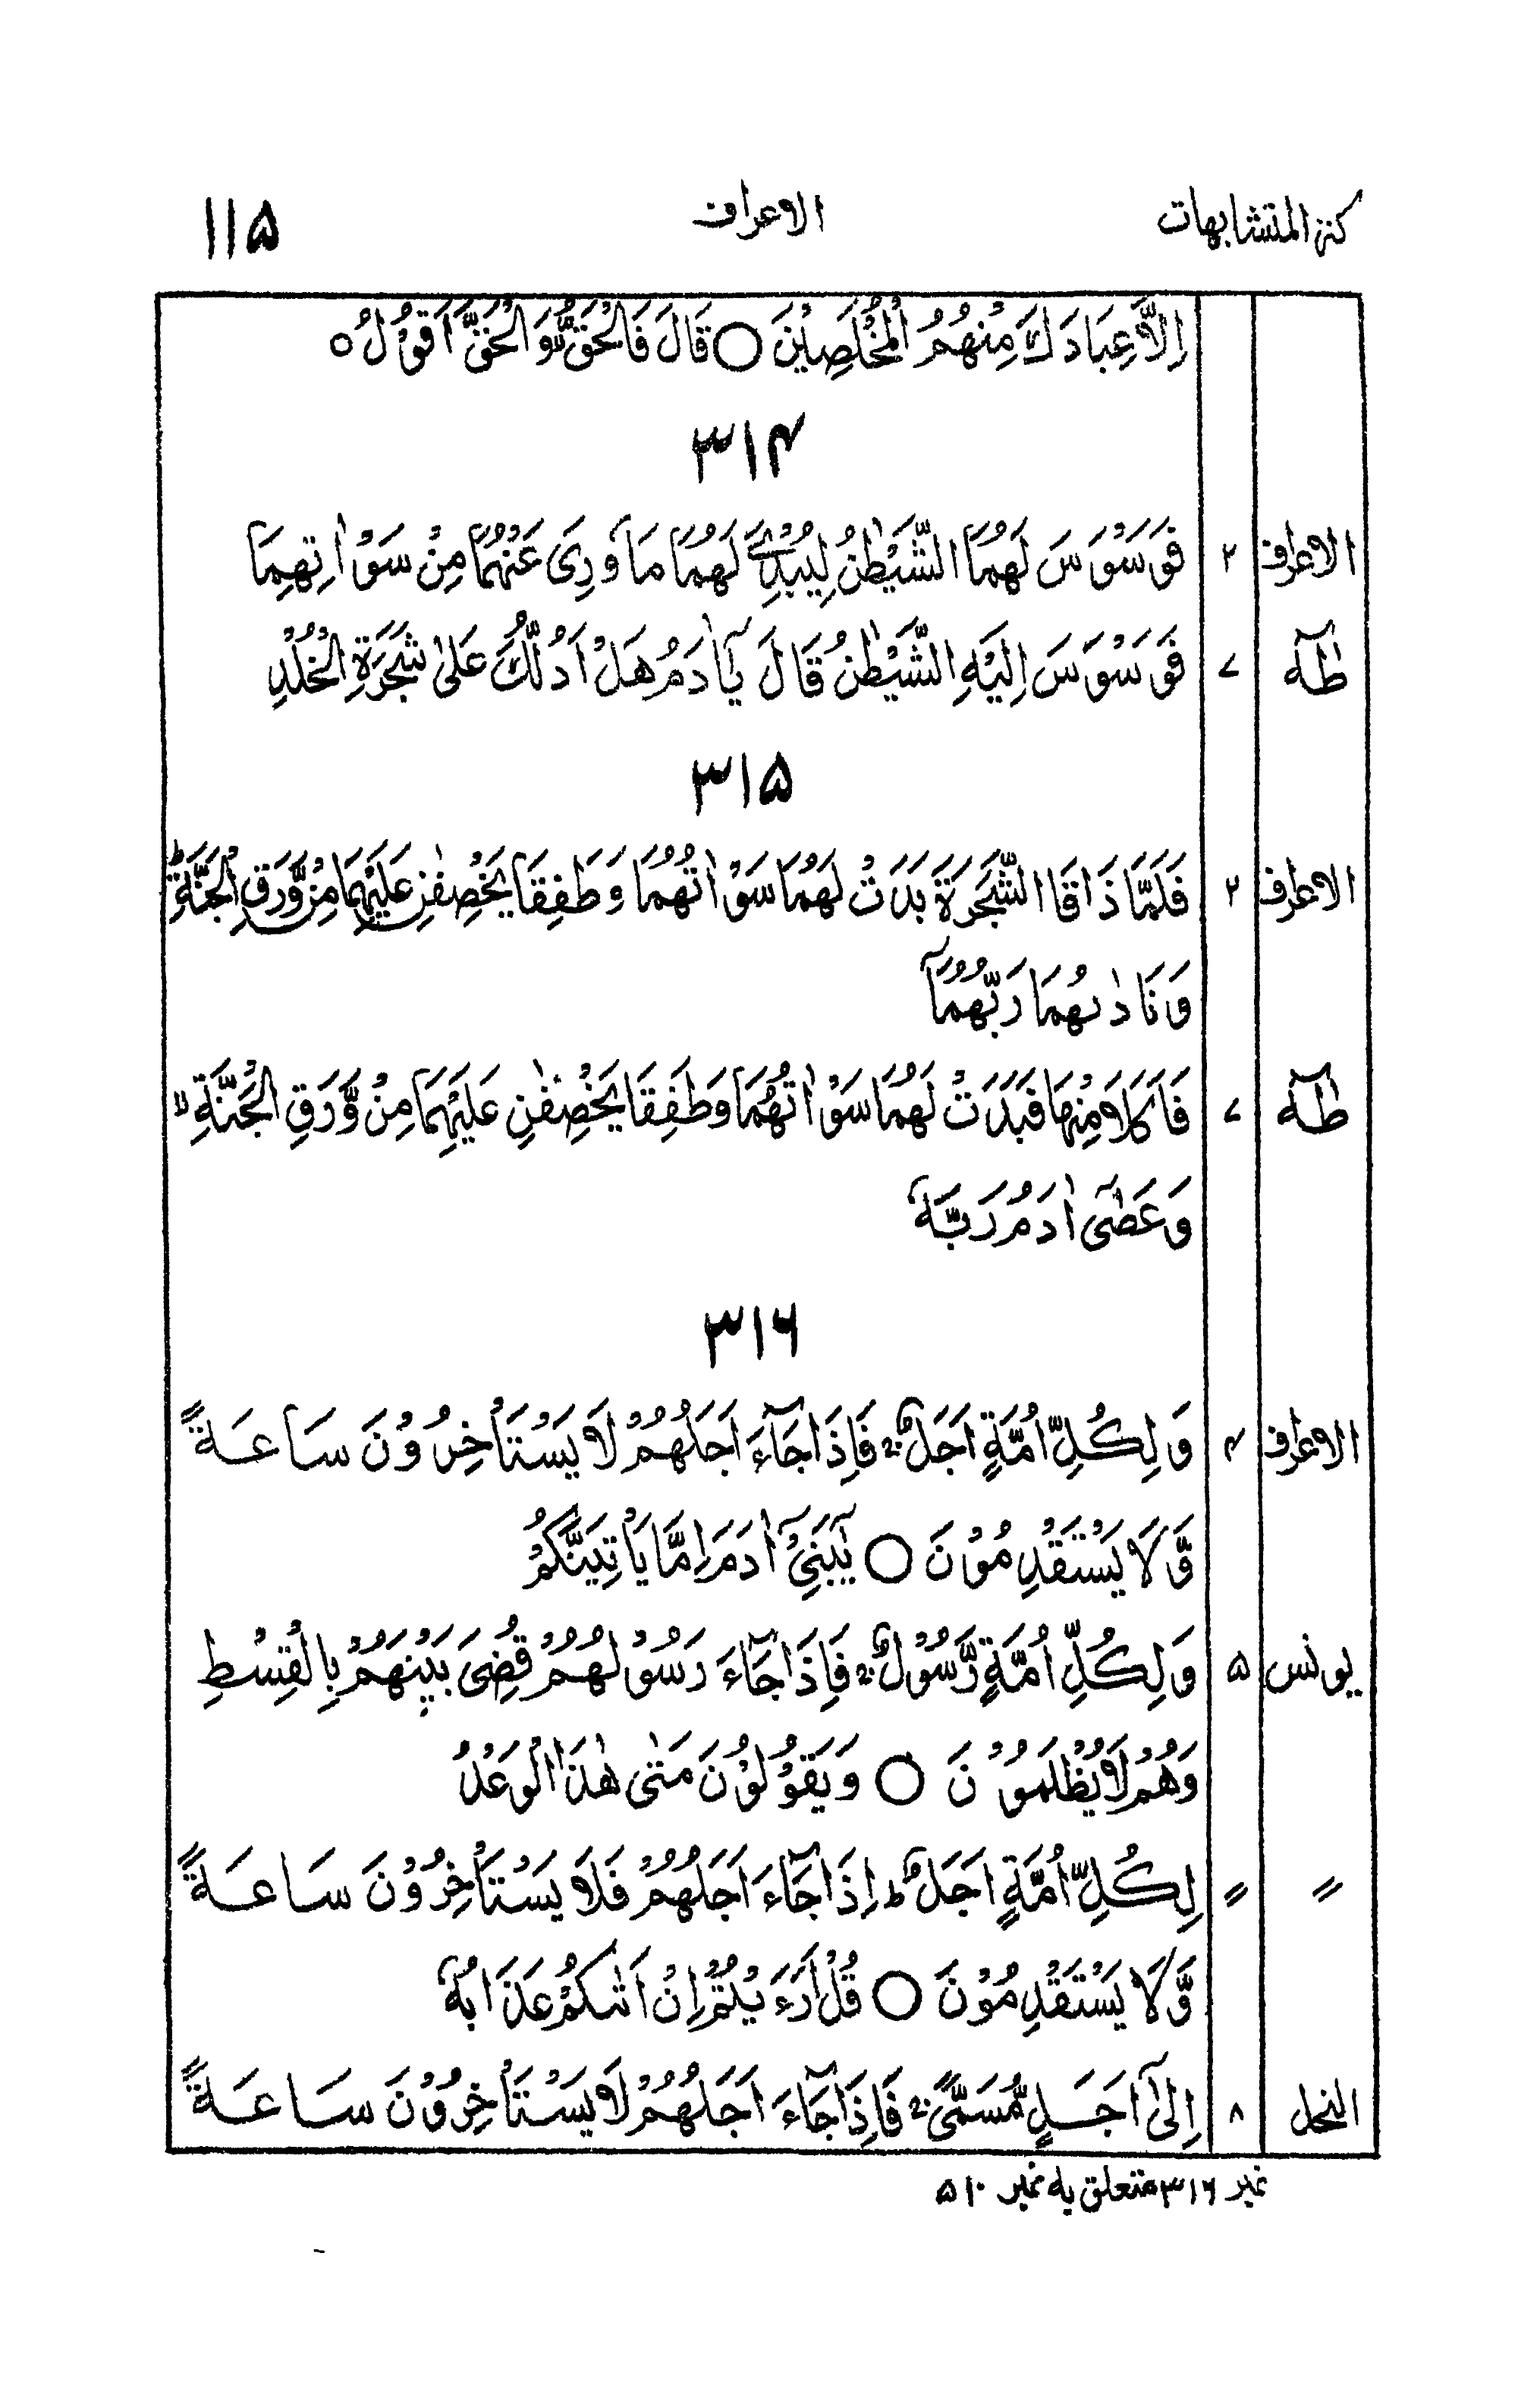 كنز المتشابهات الاعراف ۱۱۵
اِلَّا عِبَادَكَ مِنْهُمُ الْمُخْلَصِيْنَ ○ قَالَ فَالْحَقُّ وَالْحَقَّ اَقُوْلُ ○
۳۱۴
الاعراف ۲ فَوَسْوَسَ لَهُمَا الشَّيْطٰنُ لِيُبْدِيَ لَهُمَا مَا وٗرِيَ عَنْهُمَا مِنْ سَوْاٰتِهِمَا
طٰهٰ ۷ فَوَسْوَسَ اِلَيْهِ الشَّيْطٰنُ قَالَ يٰٓاٰدَمُ هَلْ اَدُلُّكَ عَلٰى شَجَرَةِ الْخُلْدِ
۳۱۵
الاعراف ۲ فَلَمَّا ذَاقَا الشَّجَرَةَ بَدَتْ لَهُمَا سَوْاٰتُهُمَا وَطَفِقَا يَخْصِفٰنِ عَلَيْهِمَا مِنْ وَّرَقِ الْجَنَّةِ ط
وَنَادٰىهُمَا رَبُّهُمَآ
طٰهٰ ۷ فَاَكَلَا مِنْهَا فَبَدَتْ لَهُمَا سَوْاٰتُهُمَا وَطَفِقَا يَخْصِفٰنِ عَلَيْهِمَا مِنْ وَّرَقِ الْجَنَّةِ لا
وَعَصٰٓى اٰدَمُ رَبَّهٗ
۳۱۶
الاعراف ۴ وَلِكُلِّ اُمَّةٍ اَجَلٌ ج فَاِذَا جَآءَ اَجَلُهُمْ لَا يَسْتَاْخِرُوْنَ سَاعَةً
وَّلَا يَسْتَقْدِمُوْنَ ○ يٰبَنِيْٓ اٰدَمَ اِمَّا يَاْتِيَنَّكُمْ
يونس ۵ وَلِكُلِّ اُمَّةٍ رَّسُوْلٌ ج فَاِذَا جَآءَ رَسُوْلُهُمْ قُضِيَ بَيْنَهُمْ بِالْقِسْطِ
وَهُمْ لَا يُظْلَمُوْنَ ○ وَيَقُوْلُوْنَ مَتٰى هٰذَا الْوَعْدُ
〃 〃 لِكُلِّ اُمَّةٍ اَجَلٌ ط اِذَا جَآءَ اَجَلُهُمْ فَلَا يَسْتَاْخِرُوْنَ سَاعَةً
وَّلَا يَسْتَقْدِمُوْنَ ○ قُلْ اَرَءَيْتُمْ اِنْ اَتٰىكُمْ عَذَابُهٗ
النحل ۸ اِلٰٓى اَجَلٍ مُّسَمًّى ج فَاِذَا جَآءَ اَجَلُهُمْ لَا يَسْتَاْخِرُوْنَ سَاعَةً
نمبر ۳۱۶ متعلق به نمبر ۵۱۰